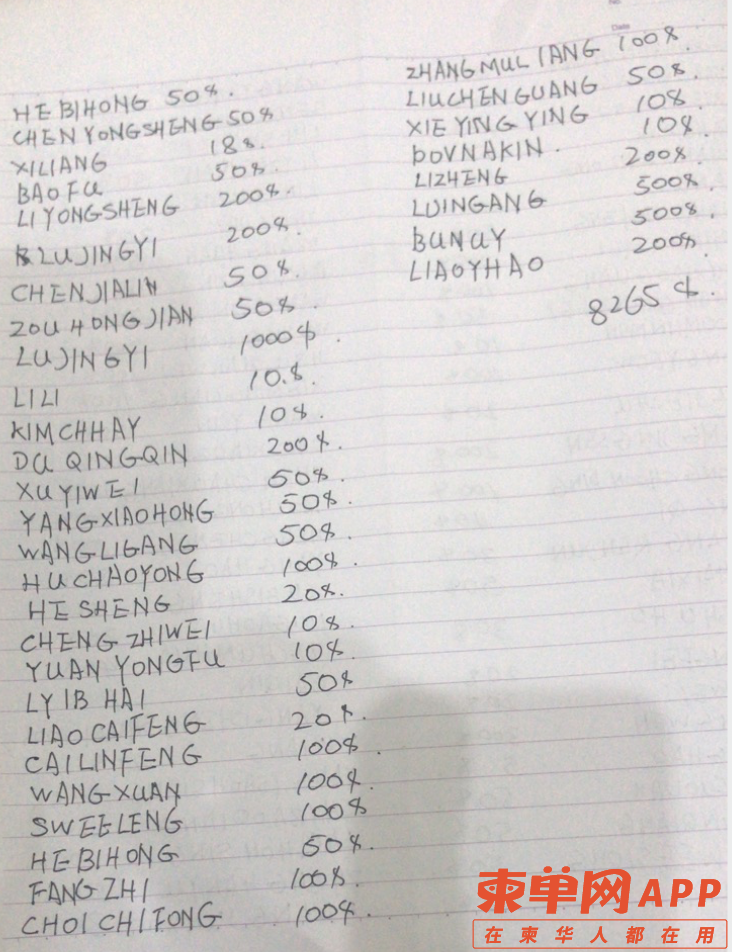 HE BIHONG 50$.
CHEN YONGSHENG 50$
XILIANG 18$.
BAOFU 50$.
LI YONGSHENG 200$.
LUJINGYI 200$.
CHENJIALIN 50$.
ZOU HONGJIAN 50$.
LUJINGYI 1000$.
LILI 10.$.
KIMCHHAY 10$.
DU QINGQIN 200$.
XUYIWEI 50$.
YANGXIAOHONG 50$.
WANGLIGANG 50$.
HUCHAOYONG 100$.
HE SHENG 20$.
CHENG ZHIWEI 10$.
YUAN YONGFU 10$.
LY IB HAI 50$
LIAO CAIFENG 20$.
CAILINFENG 100$.
WANGXUAN 100$.
SWEELENG 100$
HEBIHONG 50$.
FANG ZHI 100$.
CHOI CHI FONG 100$.
ZHANGMULIANG 100$.
LIUCHENGUANG 50$.
XIE YING YING 10$
DOVNAKIN. 10$.
LIZHENG 200$.
LUINGANG 500$.
BUNUY 500$.
LIAOYHAO 200$
8265$.
柬单网APP
在柬华人都在用